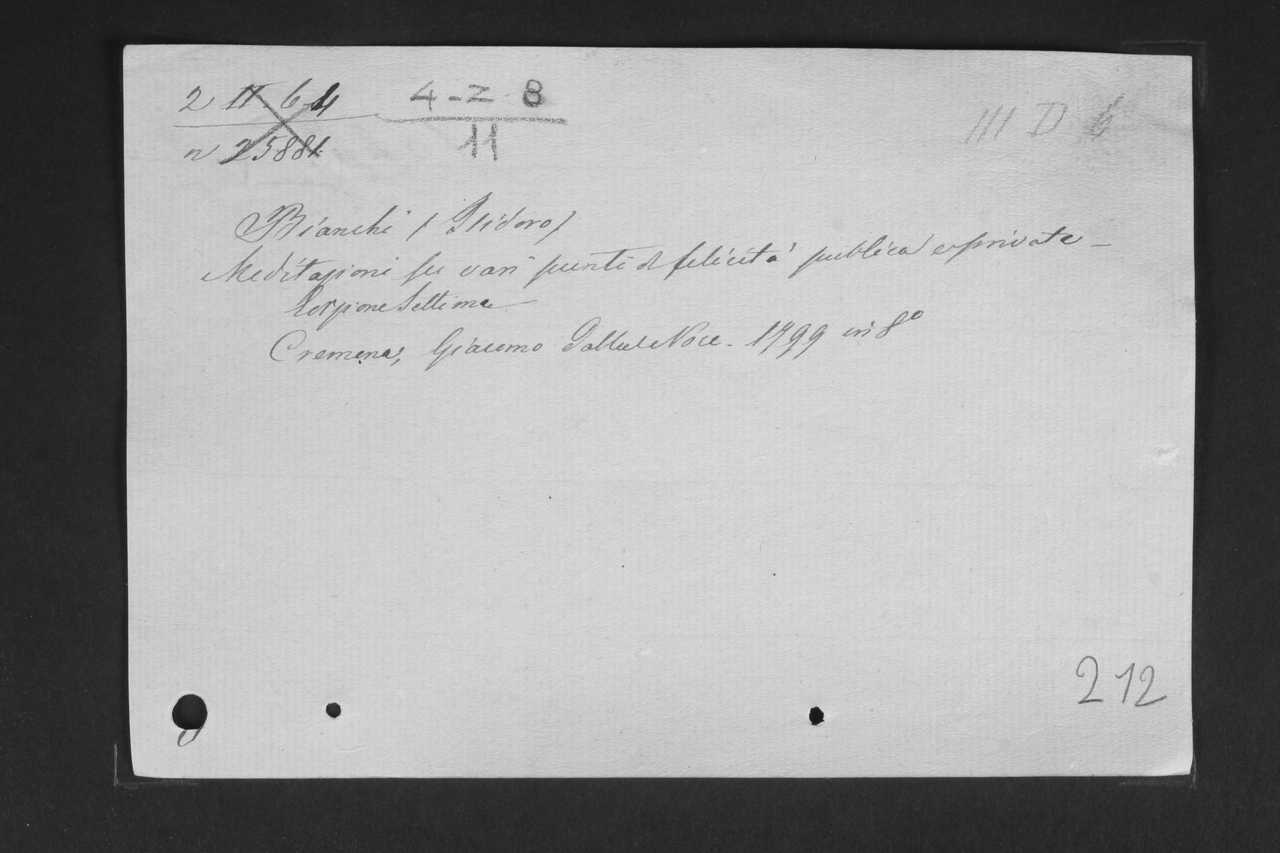 2 II 6 4
n 25881
4-Z 8
11
III D
Bianchi (Isidoro)
Meditazioni su vari punti di felicità publica e private –
Settima
Cremona, Giacomo Dalla Noce - 1799 in 8º
212